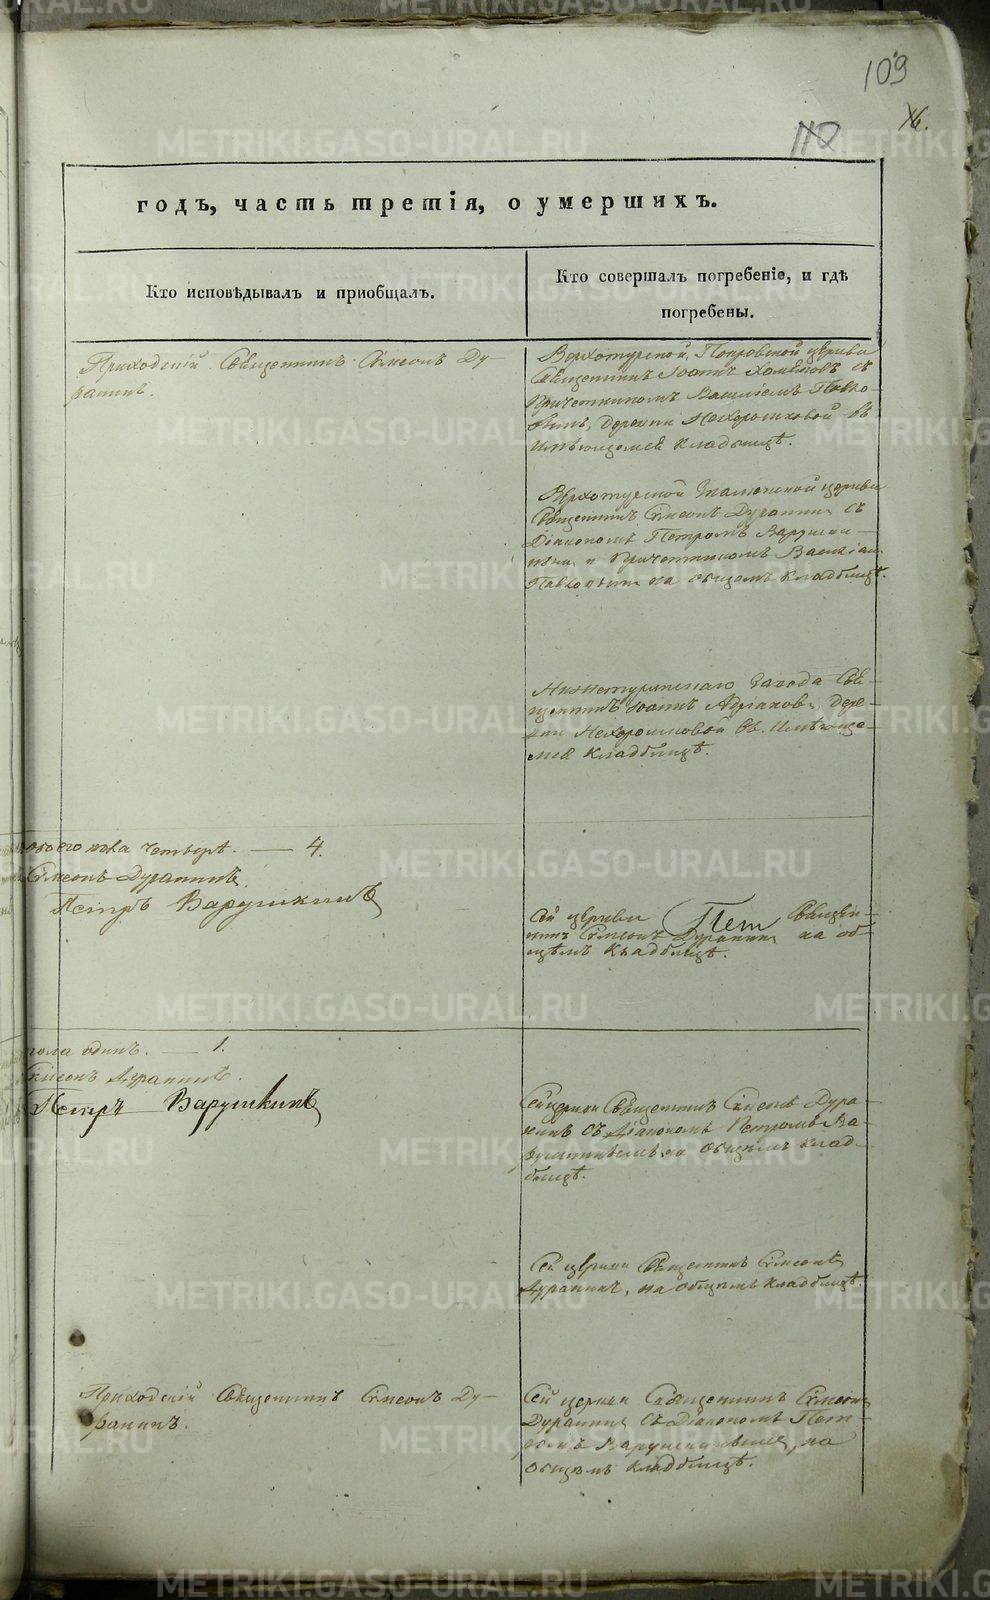 109
110
16.
годъ, часть третія, о умершихъ.
Кто исповѣдывалъ и приобщалъ.
Кто совершалъ погребеніе, и гдѣ
погребены.
Приходскій Священникъ Симеонъ Ду-
ранинъ.
Верхотурской Покровской церкви
Священникъ Іоаннъ съ
Причетникомъ Василіемъ
деревни Нехорошковой въ
имѣющемся кладбищѣ.
Верхотурской Знаменской церкви
Священникъ Симеонъ Дуранинъ съ
Діакономъ Петромъ Варушки-
нымъ и Причетникомъ Василіемъ
на общемъ кладбищѣ.
Нижнетуринскаго Завода Свя-
щенникъ Іоаннъ Адріановъ, дере-
вни Нехорошковой въ имѣюще-
мся кладбищѣ.
обоего пола четыре. — 4.
Симеонъ Дуранинъ.
Петръ Варушкинъ
Сей церкви Пет Священ-
никъ Симеонъ Дуранинъ на об-
щемъ кладбищѣ.
пола одинъ. — 1.
Симеонъ Дуранинъ.
Петръ Варушкинъ
Сей церкви Священникъ Симеонъ Дура-
нинъ съ Діакономъ Петромъ Ва-
рушкинымъ на общемъ клад-
бищѣ.
Сей церкви Священникъ Симеонъ
Дуранинъ, на общемъ кладбищѣ.
Приходскій Священникъ Симеонъ Ду-
ранинъ.
Сей церкви Священникъ Симеонъ
Дуранинъ съ Діакономъ Пет-
ромъ Варушкинымъ, на
общемъ кладбищѣ.
METRIKI.GASO-URAL.RU